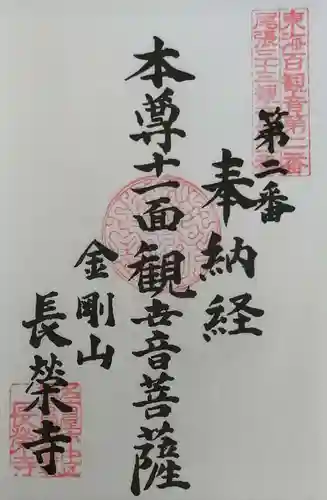 東海百観音第二番
尾張三十三観音
第二番
奉納経
本尊十一面観世音菩薩
金剛山
長榮寺
長榮寺